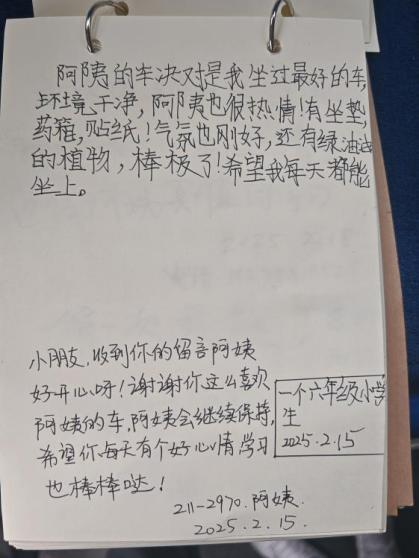 阿姨的车决对是我坐过最好的车,
环境干净,阿姨也很热情!有坐垫,
药箱,贴纸!气氛也刚好,还有绿油油
的植物,棒极了!希望我每天都能
坐上。
小朋友,收到你的留言阿姨
好开心呀!谢谢你这么喜欢
阿姨的车,阿姨会继续保持,
希望你每天有个好心情学习
也棒棒哒!
一个六年级小学
生
2025.2.15
211-2970.阿姨.
2025.2.15.